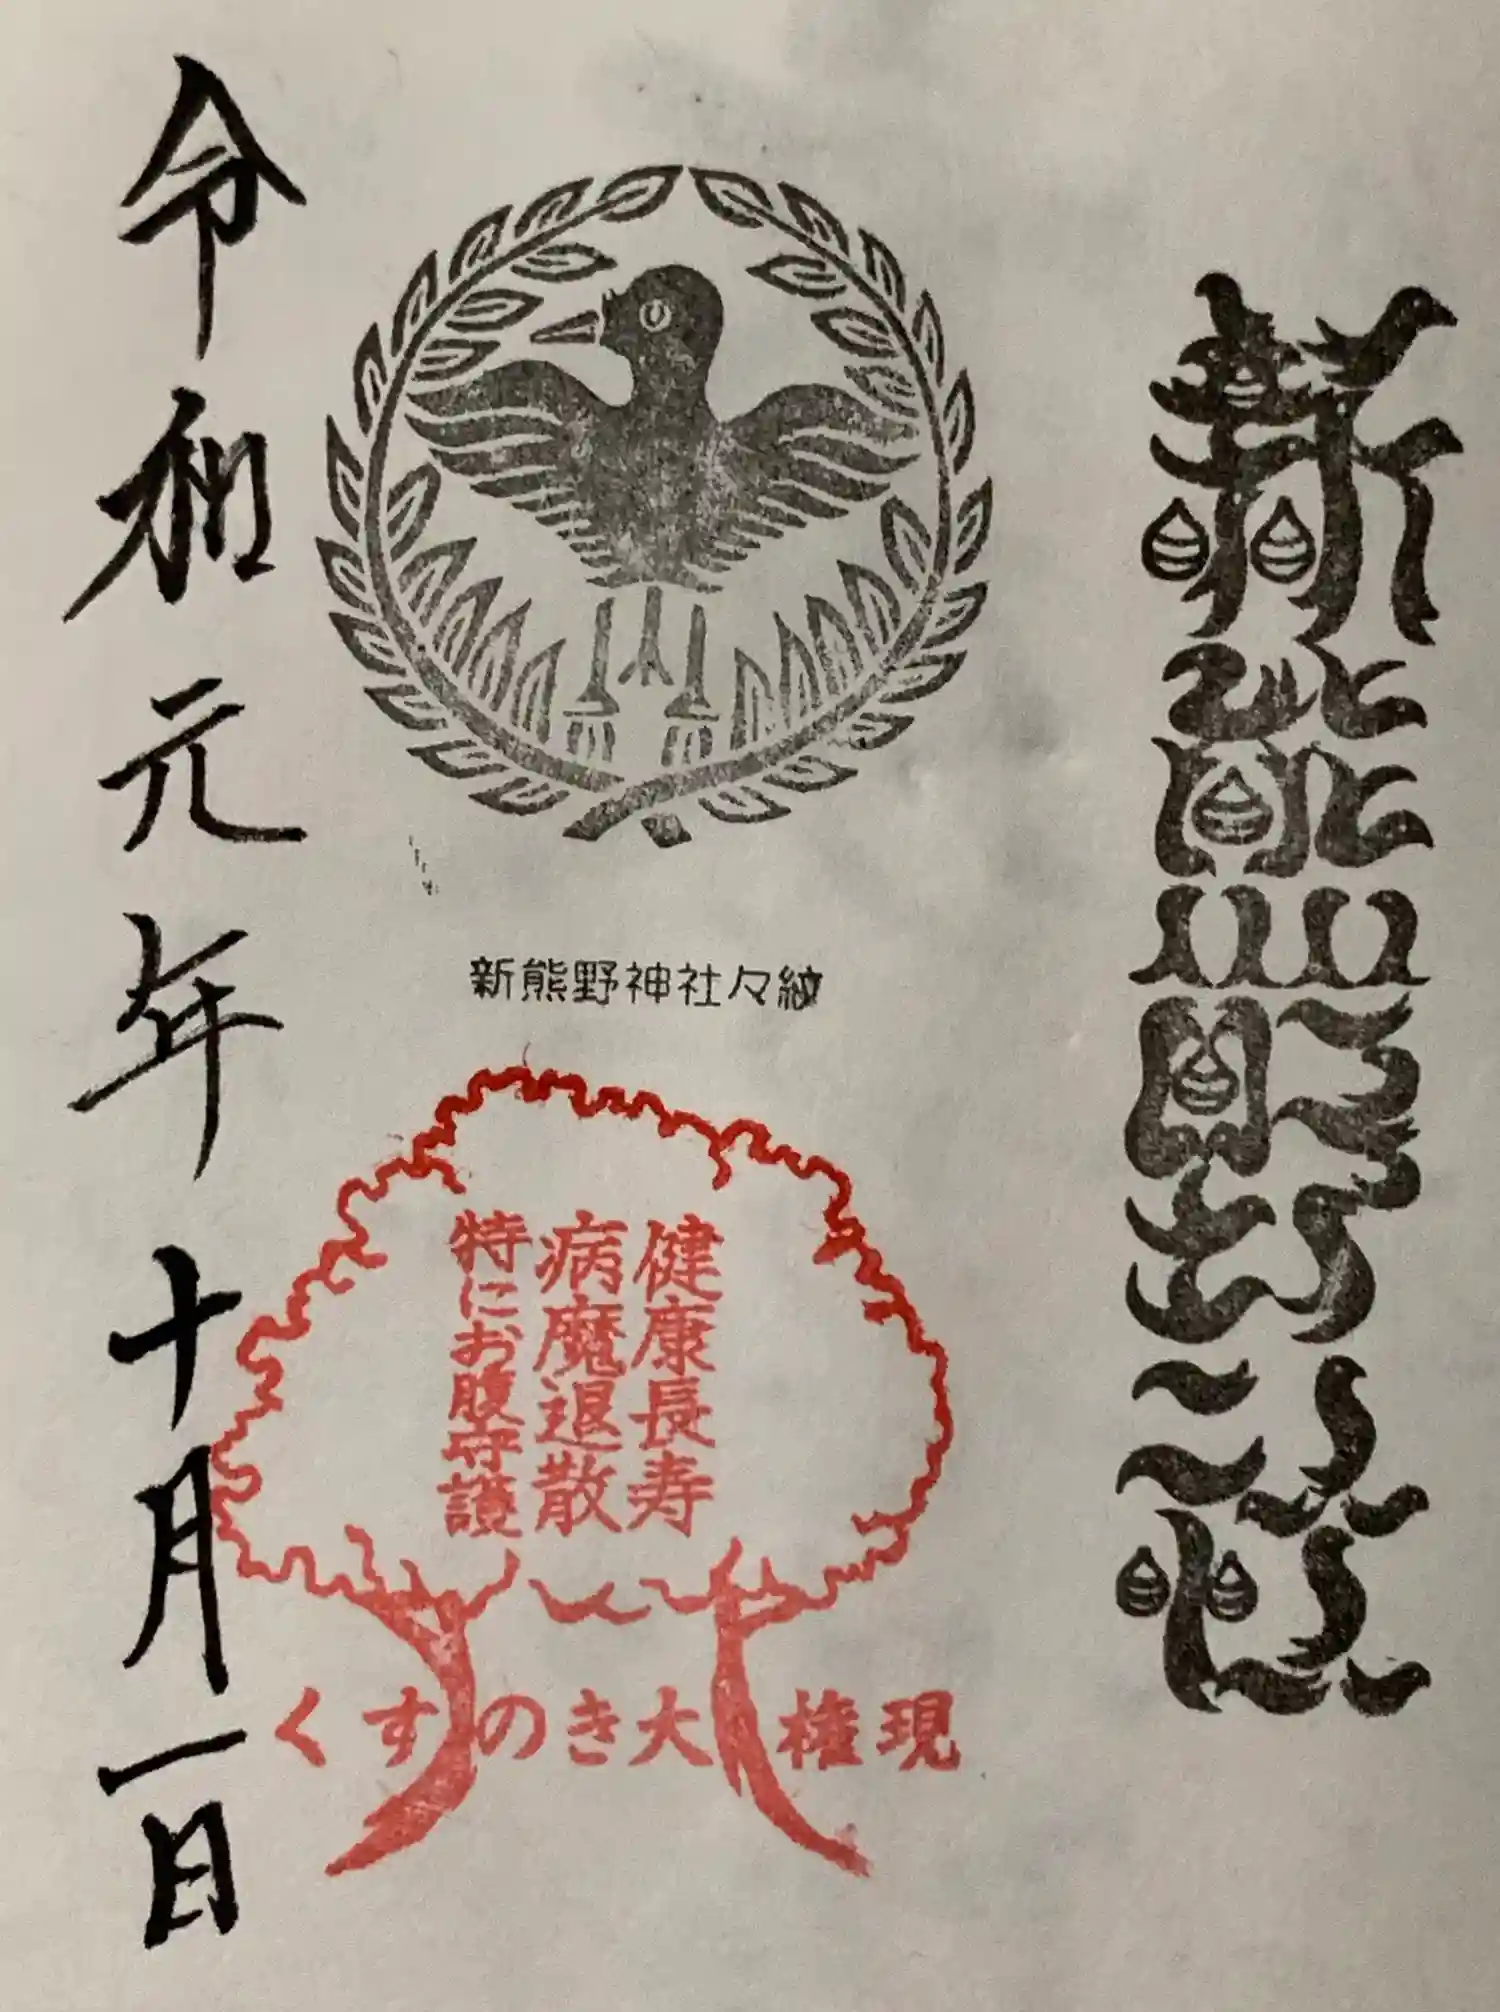 新熊野社
新熊野神社々紋
健康長寿
病魔退散
特にお腹守護
くすのき大権現
令和元年十月一日